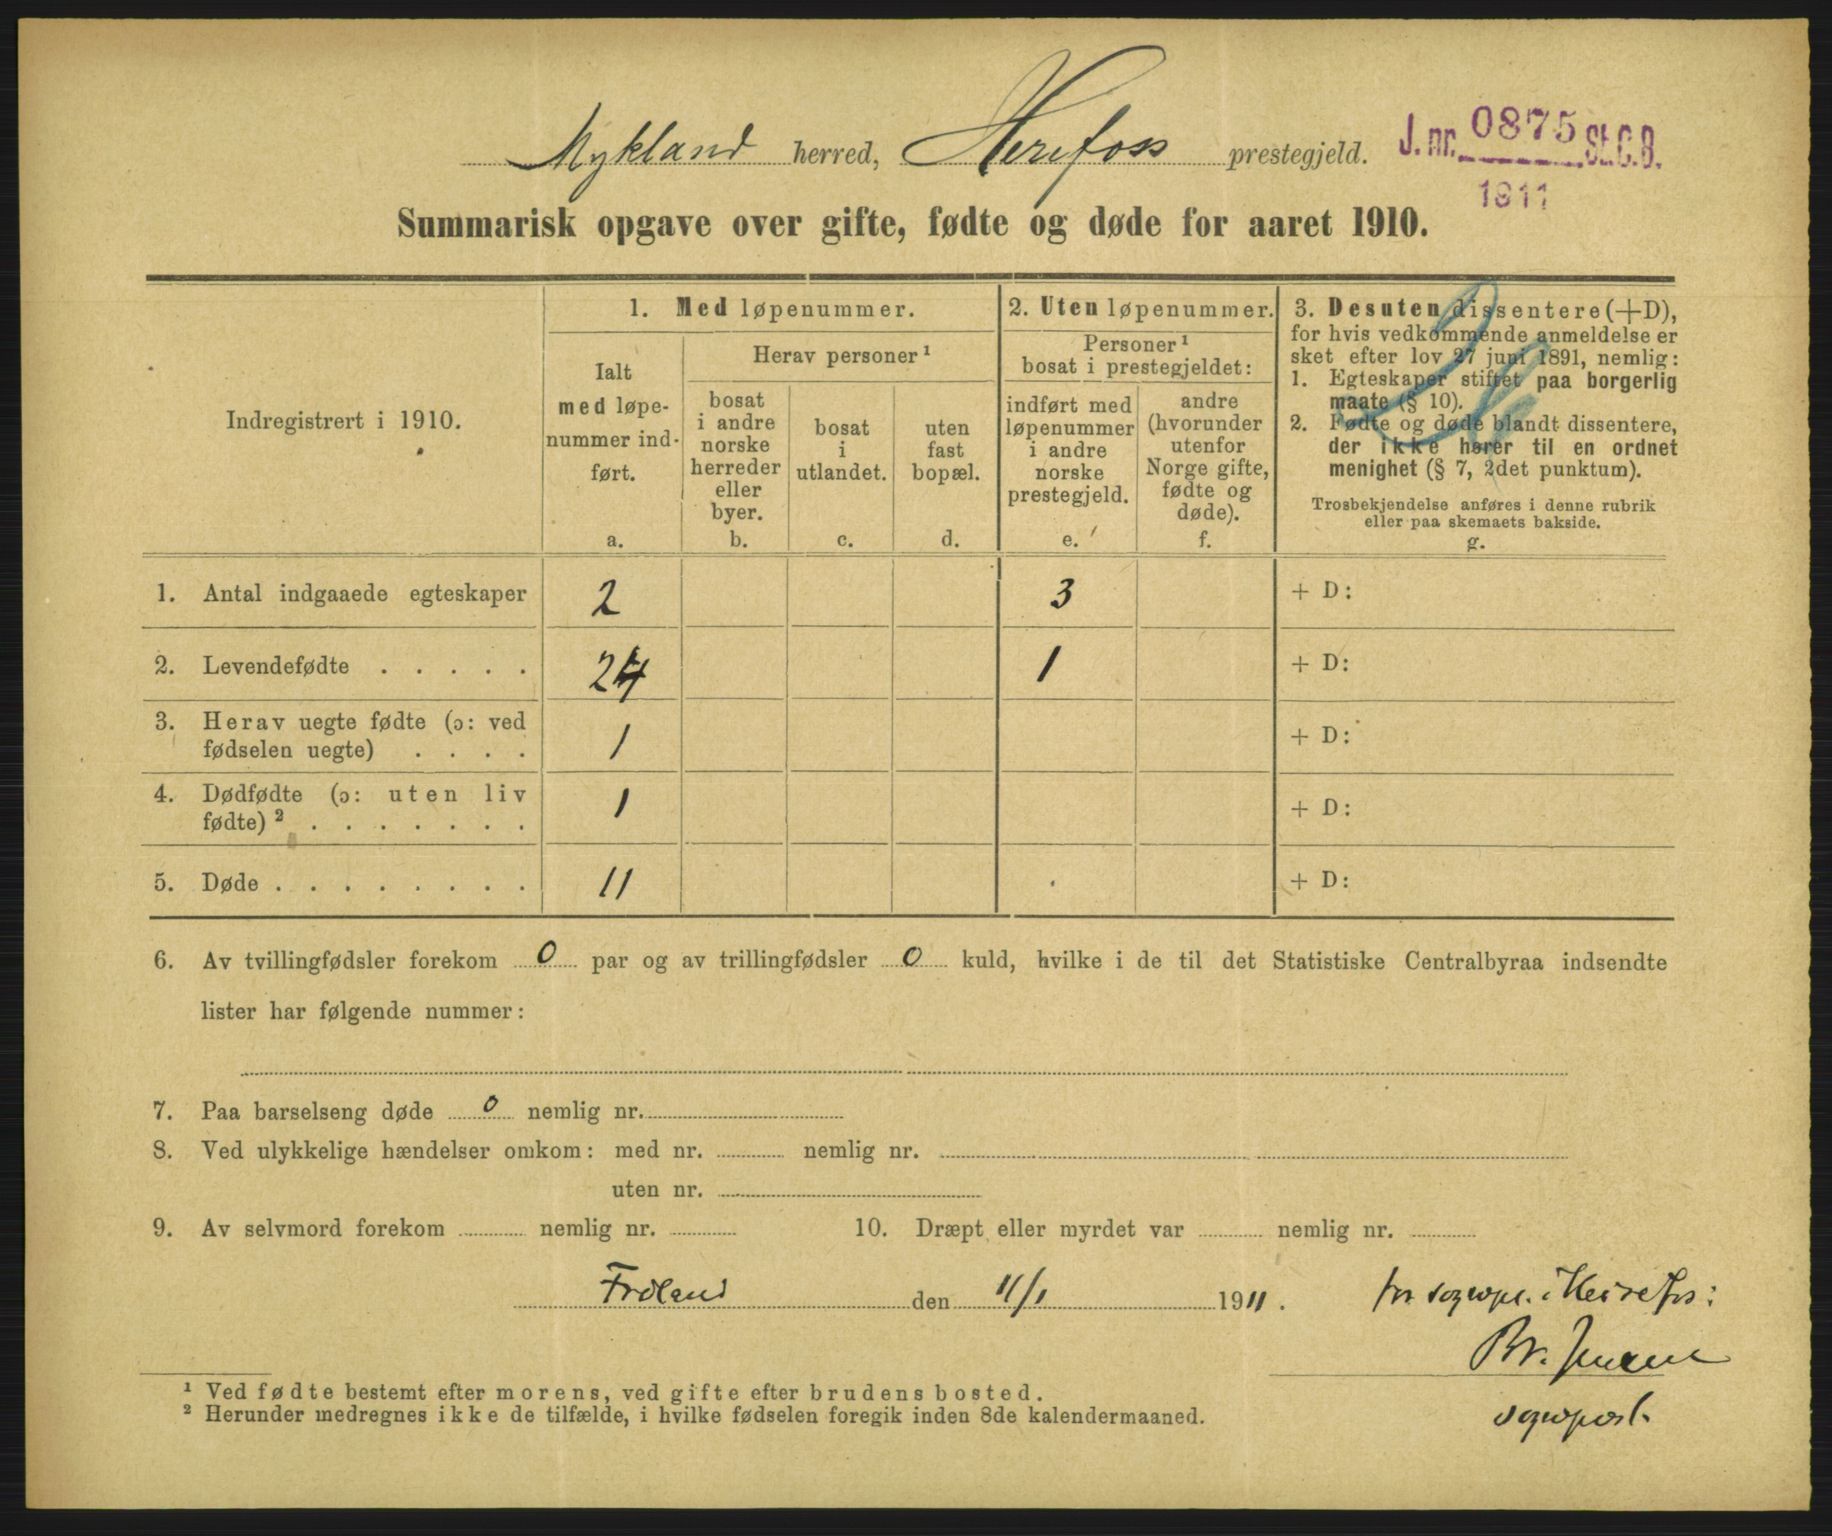 Mykland herred, Herefoss prestegjeld. J. nr. 0875 St.C.B.
1911
Summarisk opgave over gifte, fødte og døde for aaret 1910.
Indregistrert i 1910.
1. Med løpenummer.
Ialt
med løpe-
nummer ind-
ført.
a.
Herav personer ¹
bosat
i andre
norske
herreder
eller
byer.
b.
bosat
i
utlandet.
c.
uten
fast
bopæl.
d.
2. Uten løpenummer.
Personer ¹
bosat i prestegjeldet:
indført med
løpenummer
i andre
norske
prestegjeld.
e.
andre
(hvorunder
utenfor
Norge gifte,
fødte og
døde).
f.
3. Desuten dissentere (+D),
for hvis vedkommende anmeldelse er
sket efter lov 27 juni 1891, nemlig:
1. Egteskaper stiftet paa borgerlig
maate (§ 10).
2. Fødte og døde blandt dissentere,
der ikke hører til en ordnet
menighet (§ 7, 2det punktum).
Trosbekjendelse anføres i denne rubrik
eller paa skemaets bakside.
g.
1. Antal indgaaede egteskaper 2 3 + D:
2. Levendefødte . . . . . 24 1 + D:
3. Herav uegte fødte (ɔ: ved
fødselen uegte) . . . . 1 + D:
4. Dødfødte (ɔ: uten liv
fødte) ² . . . . . . . 1 + D:
5. Døde . . . . . . . . 11 + D:
6. Av tvillingfødsler forekom 0 par og av trillingfødsler 0 kuld, hvilke i de til det Statistiske Centralbyraa indsendte
lister har følgende nummer:
7. Paa barselseng døde 0 nemlig nr.
8. Ved ulykkelige hændelser omkom: med nr. nemlig nr.
uten nr.
9. Av selvmord forekom nemlig nr. 10. Dræpt eller myrdet var nemlig nr.
Froland den 11/1 1911. for sognepr. i Heirefos:
Br.
sogneprest.
¹ Ved fødte bestemt efter morens, ved gifte efter brudens bosted.
² Herunder medregnes ikke de tilfælde, i hvilke fødselen foregik inden 8de kalendermaaned.